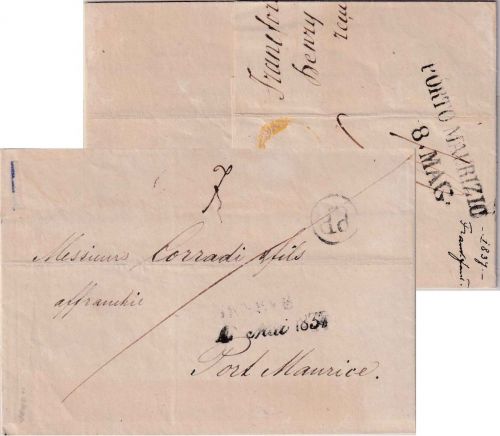 Francfor
Henry
PORTO MAURIZIO
8. MAG.
- 1837 -
Frankfurt.
PP
Messieurs Corradi & fils
affranchie
Mai 1837
Port Maurice.